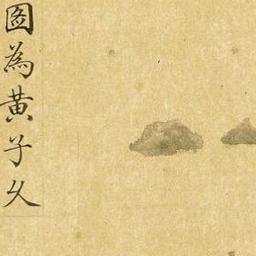 圖為黃子久